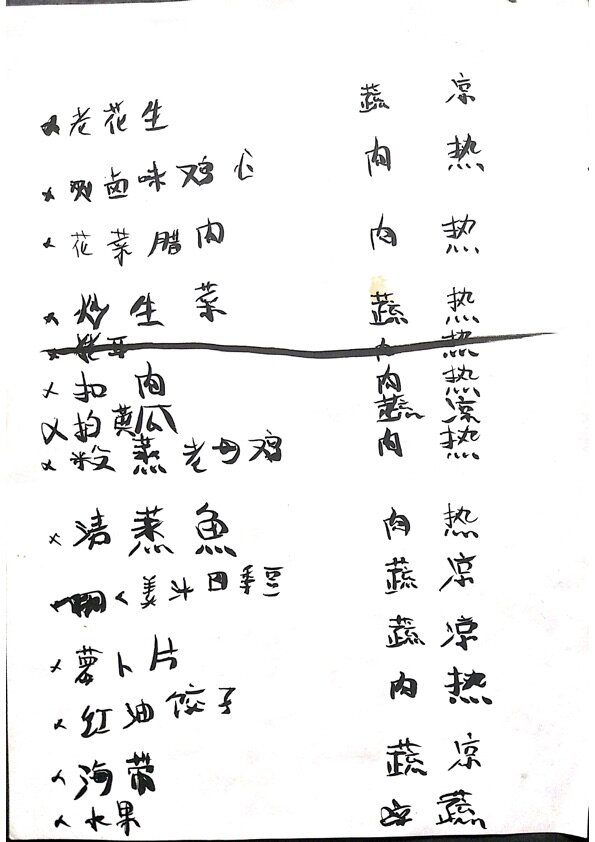 老花生 蔬 凉
卤味鸡心 肉 热
花菜腊肉 肉 热
炒生菜 蔬 热
扣肉 肉 热
拍黄瓜 蔬 凉
蒸老母鸡 肉 热
清蒸魚 肉 热
四季豆 蔬 凉
萝卜片 蔬 凉
红油饺子 肉 热
海带 蔬 凉
水果 凉 蔬